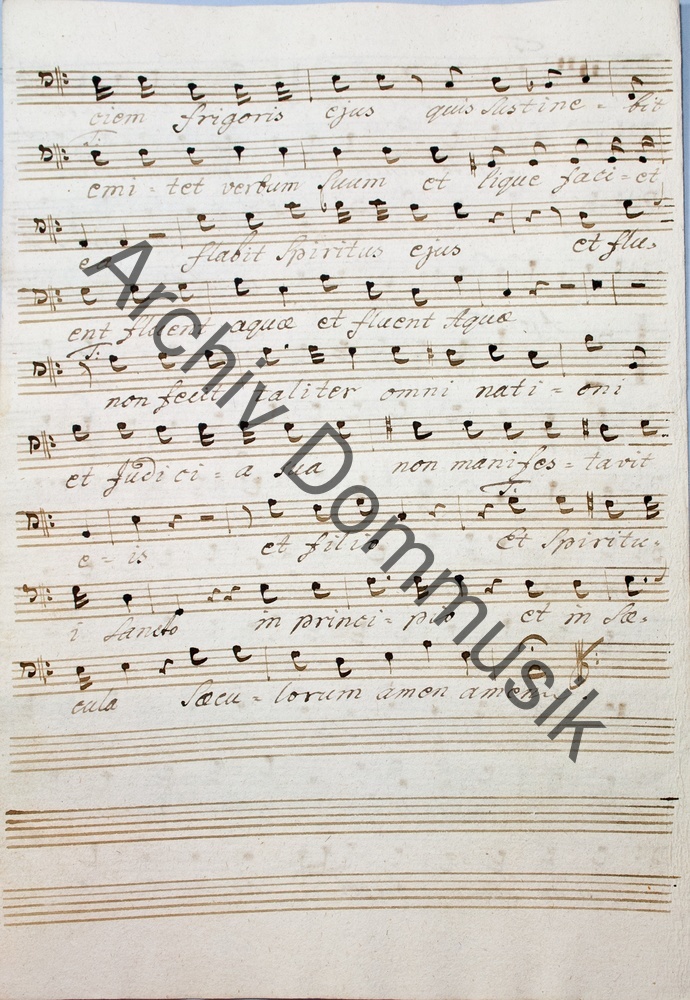 ciem frigoris ejus quis sustine - bit
T:
emi - tet verbum suum et lique faci - et
ea flabit spiritus ejus et flu-
ent fluent aquæ et fluent Aquæ
T:
non fecit taliter omni nati - oni
et Judici - a sua non manifes - tavit
T:
e - is et filio Et Spiritu-
i Sancto in princi - pio et in Sæ-
cula Sæcu - lorum amen amen
Archiv Dommusik